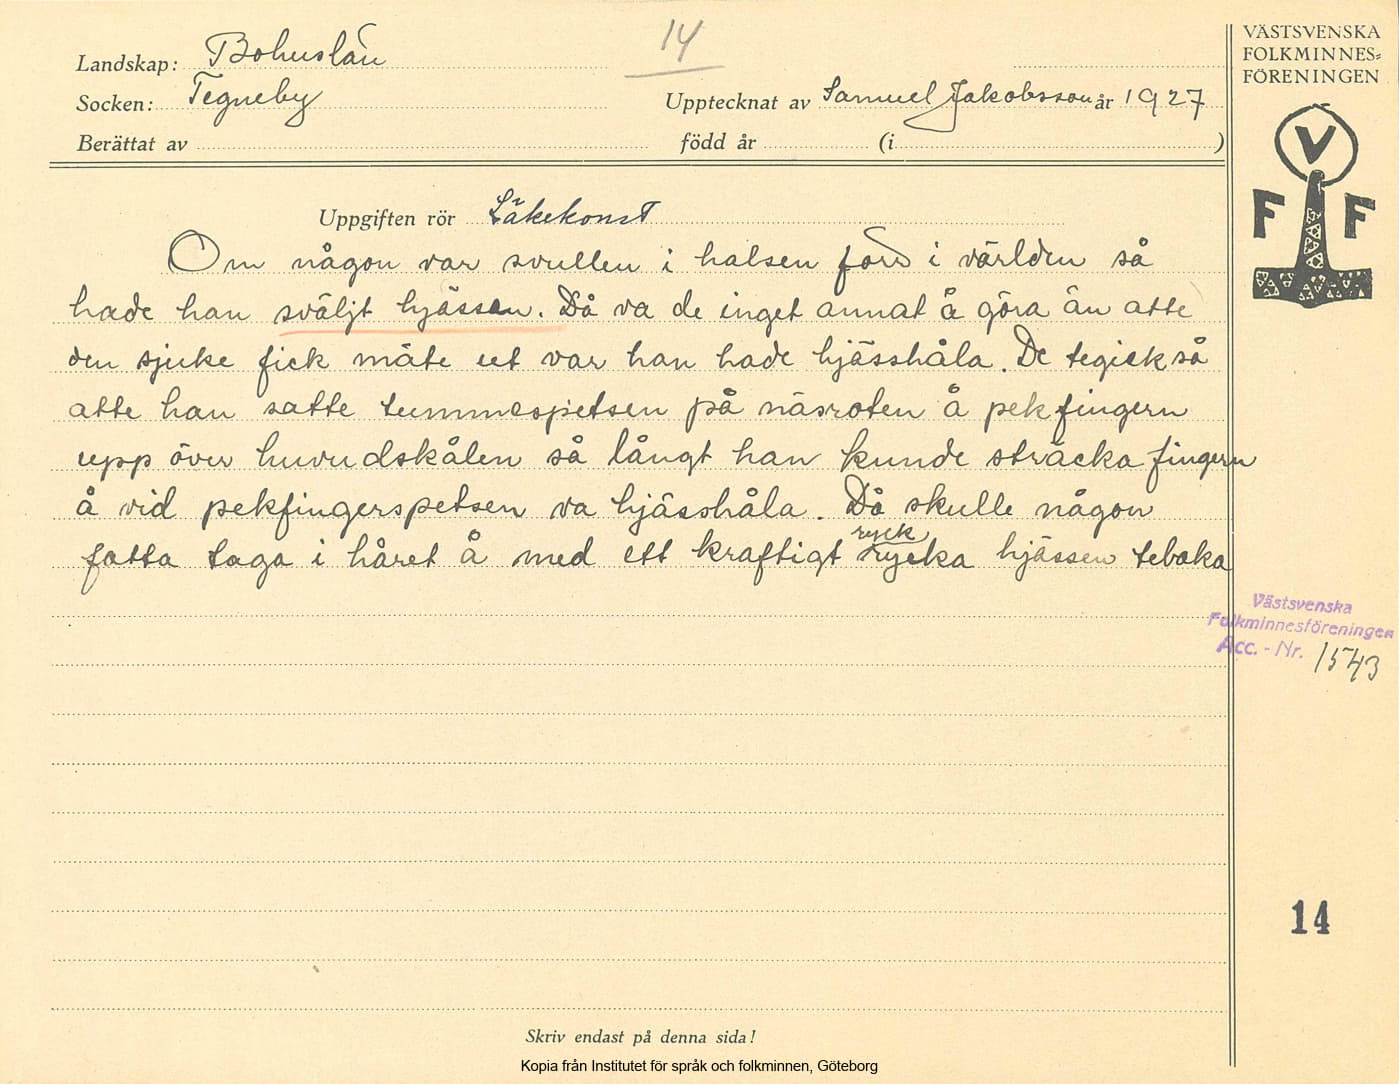 14
Landskap: Bohuslän
Socken: Tegneby
Upptecknat av Samuel Jakobsson år 1927
Berättat av född år (i )
VÄSTSVENSKA
FOLKMINNES=
FÖRENINGEN
V
F F
Uppgiften rör Läkekonst
Om någon var svullen i halsen förr i världen så
hade han sväljt hjässan. Då va de inget annat å göra än atte
den sjuke fick mäte ut var han hade hjässhåla. De tegick så
atte han satte tummespetsen på näsroten å pekfingern
upp över huvudskålen så långt han kunde sträcka fingern
å vid pekfingerspetsen va hjässhåla. Då skulle någon
ryck
fatta taga i håret å med ett kraftigt rycka hjässen tebaka
Västsvenska
Folkminnesföreningen
Acc. - Nr. 1543
14
Skriv endast på denna sida!
Kopia från Institutet för språk och folkminnen, Göteborg